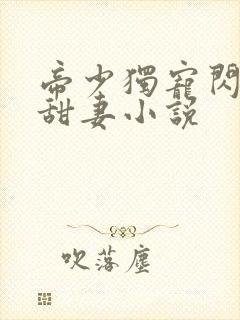 帝少獨寵閃
甜妻小説
吹落塵